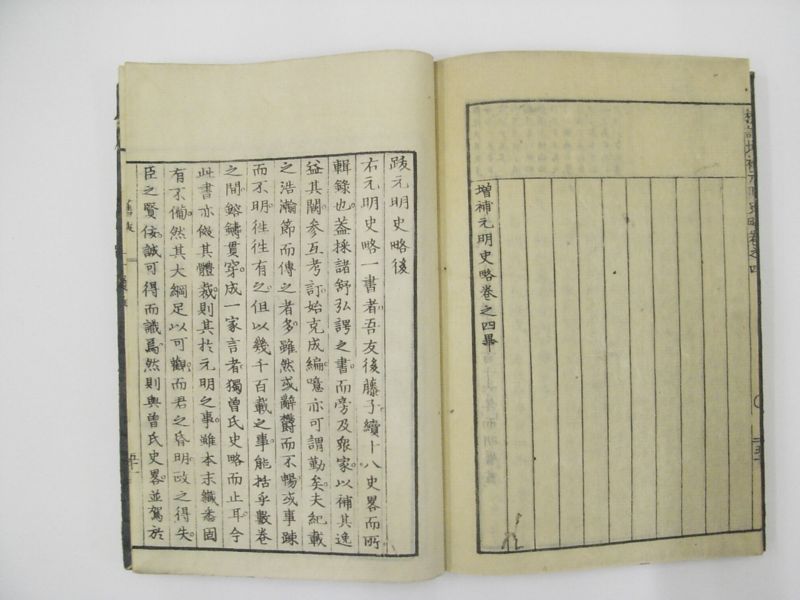 增補元明史略卷之四畢
跋元明史略後
右元明史略一書者吾友後藤子續十八史畧而所
輯錄也蓋採諸舒弘諤之書而旁及眾家以補其逸
益其闕參互考訂始克成編噫亦可謂勤矣夫紀載
之浩瀚節而傳之者多雖然或辭欝而不暢或事踈
而不明徃徃有之但以幾千百載之事能括乎數卷
之間鎔鑄貫穿成一家言者獨曾氏史略而止耳今
此書亦傚其體裁則其於元明之事雖本末纖悉固
有不備然其大綱足以可觀而君之昏明政之得失
臣之賢佞誠可得而識焉然則與曾氏史畧並駕於